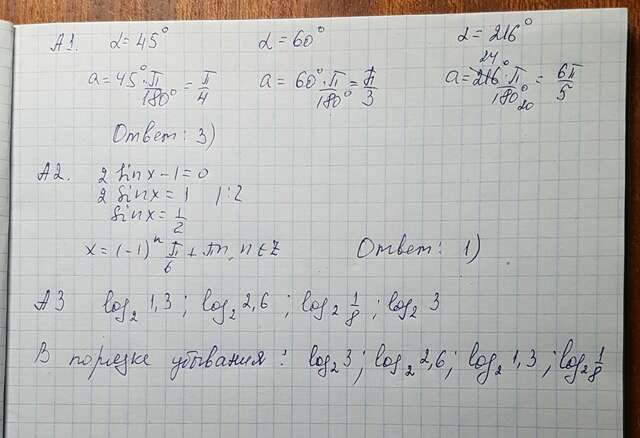 А1. α = 45° α = 60° α = 216°
a = 45°·π/180° = π/4 a = 60°·π/180° = π/3 a = 216·π/180° = 6π/5
24°
20
Ответ: 3)
А2. 2 sin x - 1 = 0
2 sin x = 1 | : 2
sin x = 1/2
x = (-1)ⁿ π/6 + πn, n ∈ Z Ответ: 1)
А3 log₂ 1,3 ; log₂ 2,6 ; log₂ 1/8 ; log₂ 3
В порядке убывания: log₂ 3 ; log₂ 2,6 ; log₂ 1,3 ; log₂ 1/8